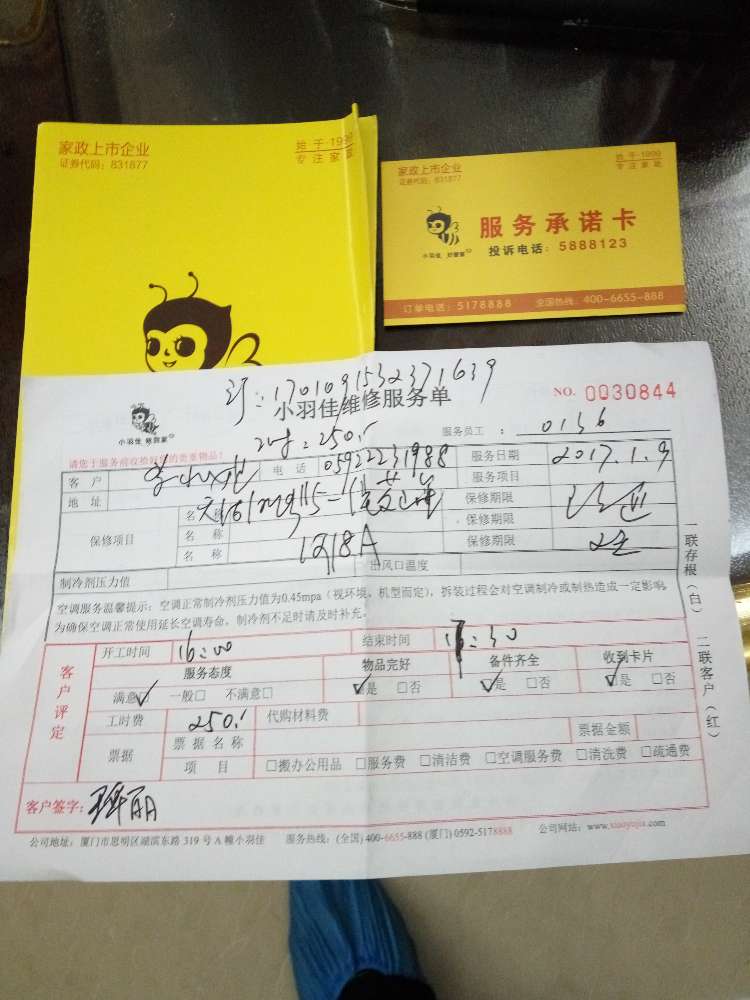 家政上市企业
证券代码：831877
始于·1999
专注家
家政上市企业
证券代码：831877
始于·1999
专注家政
服务承诺卡
投诉电话：5888123
小羽佳 好管家
订单电话：5178888 全国热线：400-6655-888
订：1701091532371639
小羽佳维修服务单
NO. 0030844
小羽佳 好管家
250
服务员工：0136
请您于服务前收拾好您的贵重物品！
客户 电话 05922231988 服务日期 2017.1.9
地址 服务项目
保修项目 名称 保修期限
名称 保修期限
名称 1218A 保修期限
制冷剂压力值 出风口温度
空调服务温馨提示：空调正常制冷剂压力值为0.45mpa（视环境、机型而定），拆装过程会对空调制冷或制热造成一定影响，
为确保空调正常使用延长空调寿命，制冷剂不足时请及时补充。
一联存根（白） 二联客户（红）
客户评定
开工时间 16:00 结束时间 17:30
服务态度 物品完好 备件齐全 收到卡片
满意☑ 一般□ 不满意□ ☑是 □否 ☑是 □否 ☑是 □否
工时费 250 代购材料费
票据 票据名称 票据金额
项目 □搬办公用品 □服务费 □清洁费 □空调服务费 □清洗费 □疏通费
客户签字：
公司地址：厦门市思明区湖滨东路319号A幢小羽佳 服务热线：(全国) 400-6655-888 (厦门) 0592-5178888 公司网站：www.xiaoyujia.com